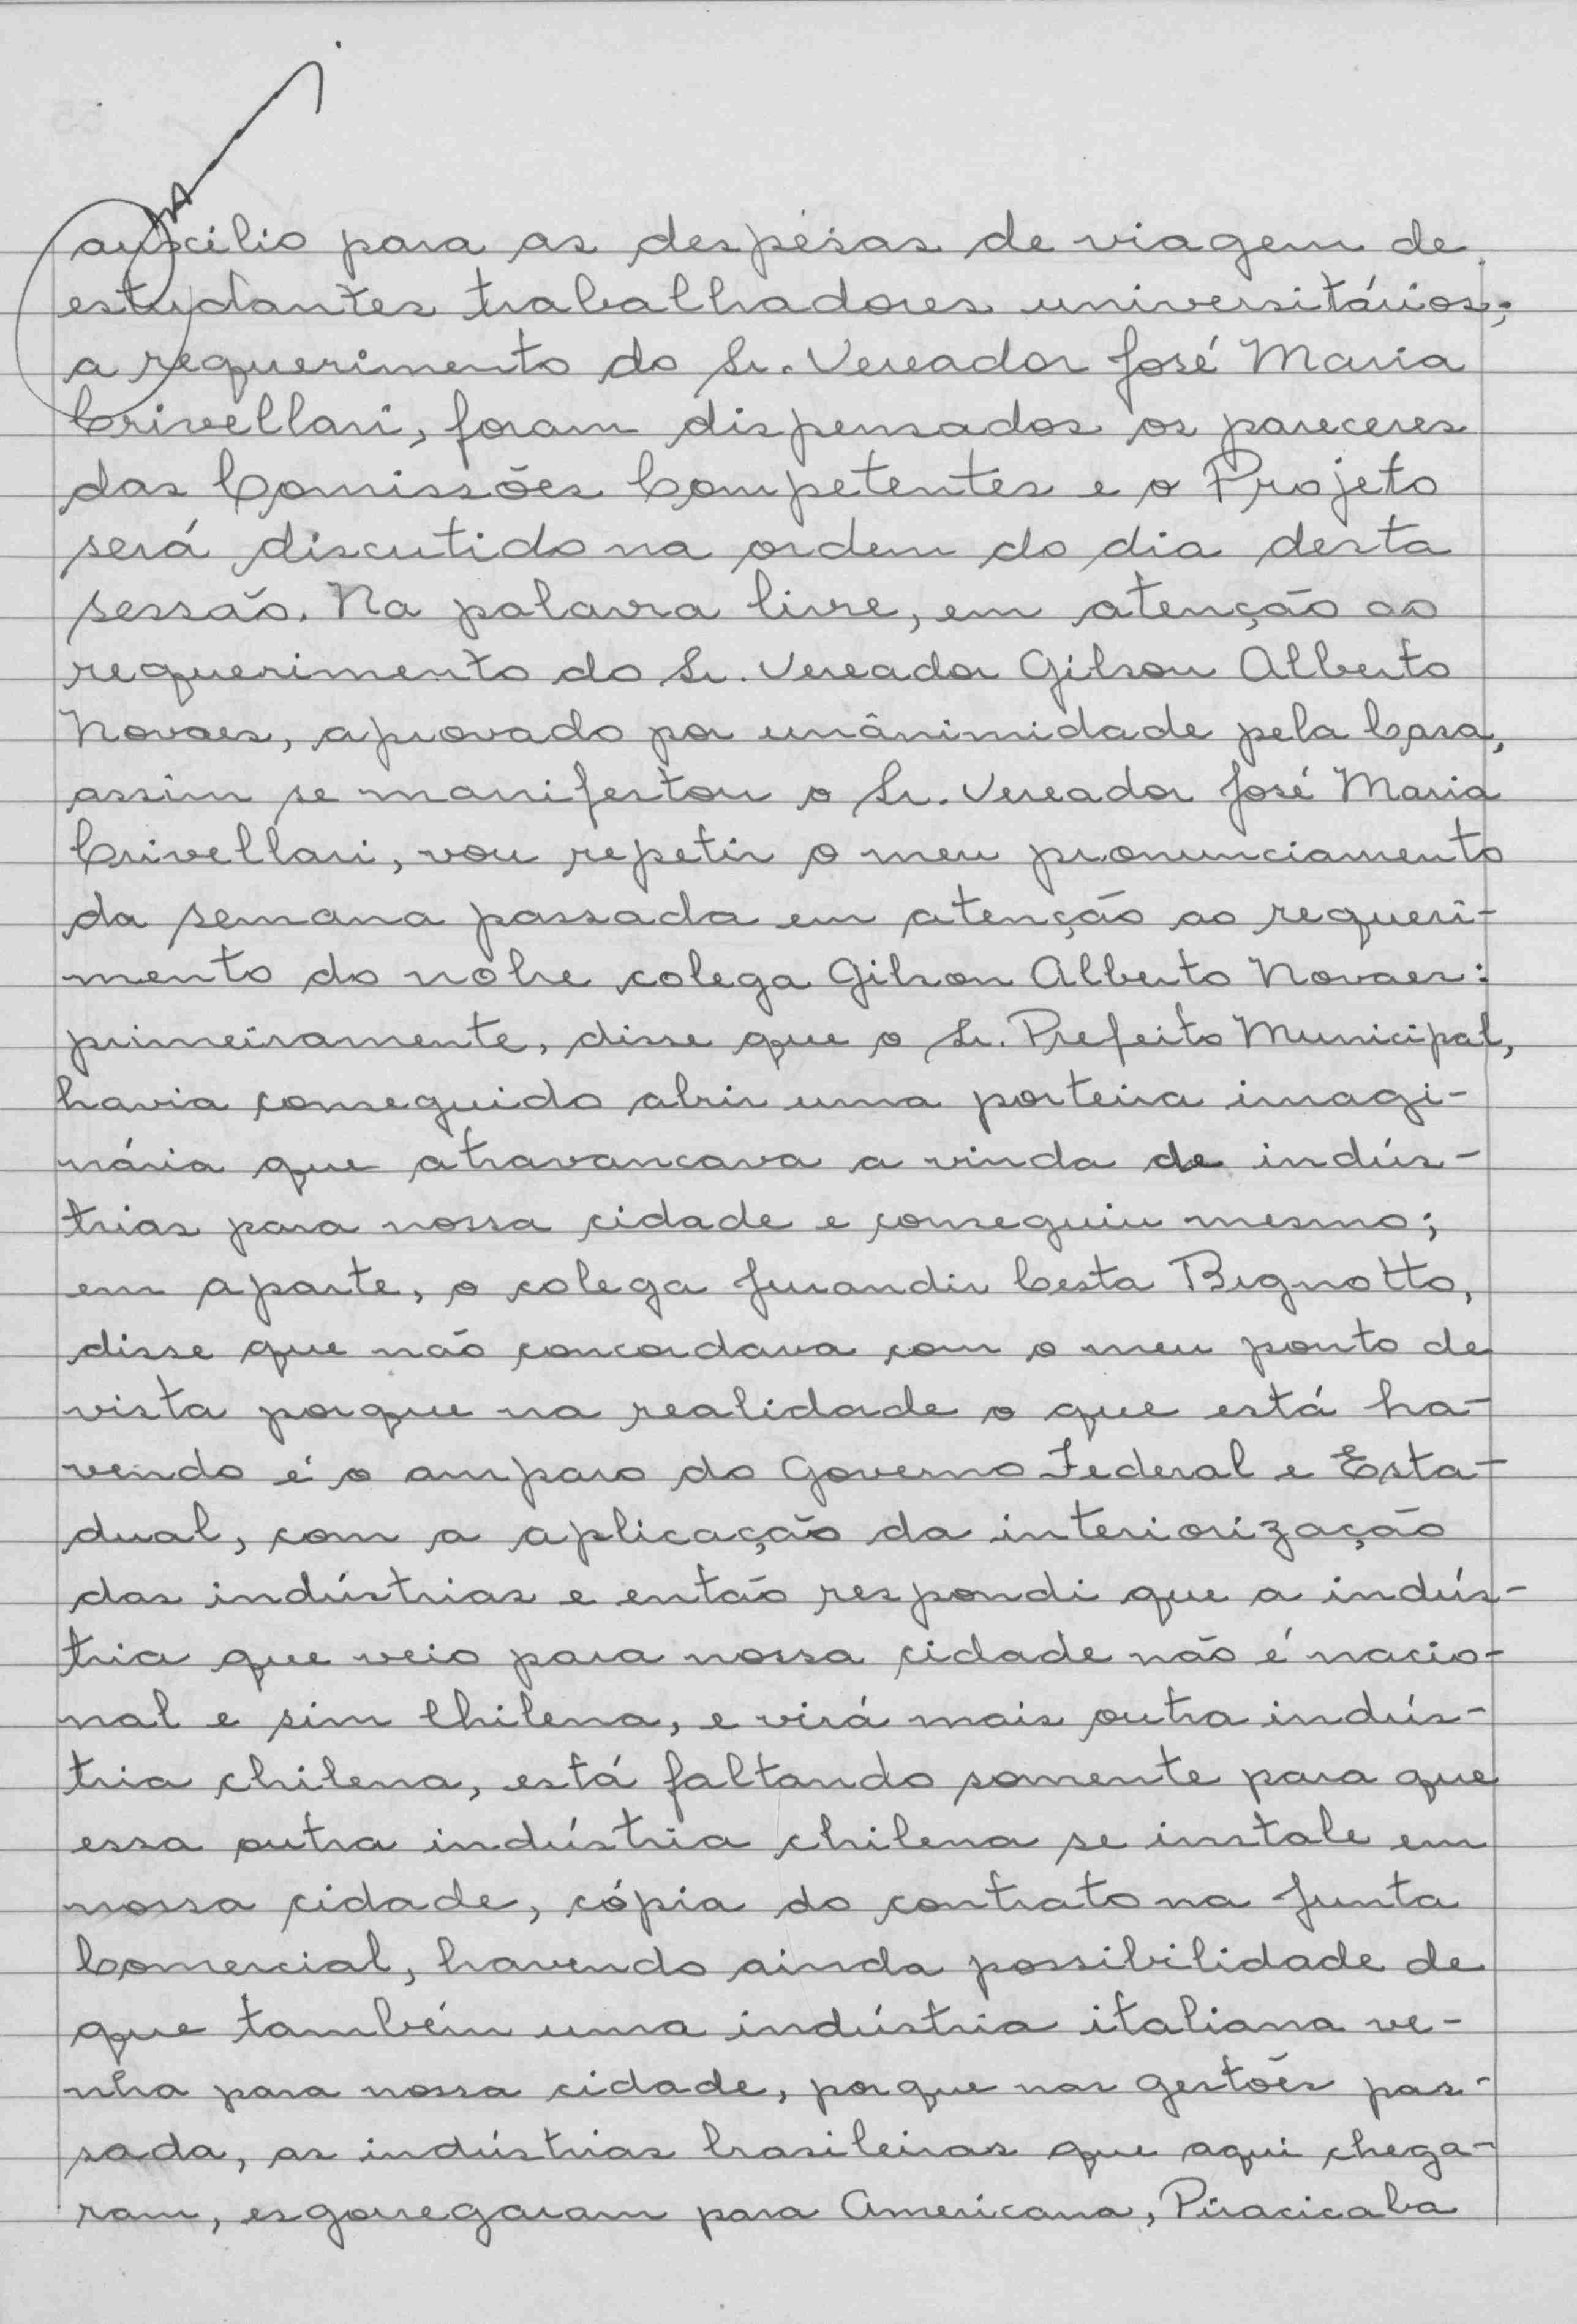 auxcílio para as despêsas de viagem de
estudantes trabalhadores universitários;
a requerimento do Sr. Vereador José Maria
Crivellari, foram dispensados os pareceres
das Comissões Competentes e o Projeto
será discutido na ordem do dia desta
sessão. Na palavra livre, em atenção ao
requerimento do Sr. Vereador Gilson Alberto
Novaes, aprovado por unânimidade pela Casa,
assim se manifestou o Sr. Vereador José Maria
Crivellari, vou repetir o meu pronunciamento
da semana passada em atenção ao requeri-
mento do nobre colega Gilson Alberto Novaes:
primeiramente, disse que o Sr. Prefeito Municipal,
havia conseguido abrir uma porteira imagi-
nária que atravancava a vinda de indús-
trias para nossa cidade e conseguiu mesmo;
em aparte, o colega Jurandir Cesta Bignotto,
disse que não concordava com o meu ponto de
vista porque na realidade o que está ha-
vendo é o amparo do Governo Federal e Esta-
dual, com a aplicação da interiorização
das indústrias e então respondi que a indús-
tria que veio para nossa cidade não é nacio-
nal e sim Chilena, e virá mais outra indús-
tria chilena, está faltando somente para que
essa outra indústria chilena se instale em
nossa cidade, cópia do contrato na Junta
Comercial, havendo ainda possibilidade de
que também uma indústria italiana ve-
nha para nossa cidade, porque nas gestões pas-
sada, as indústrias brasileiras que aqui chega-
ram, esgorregaram para Americana, Piracicaba